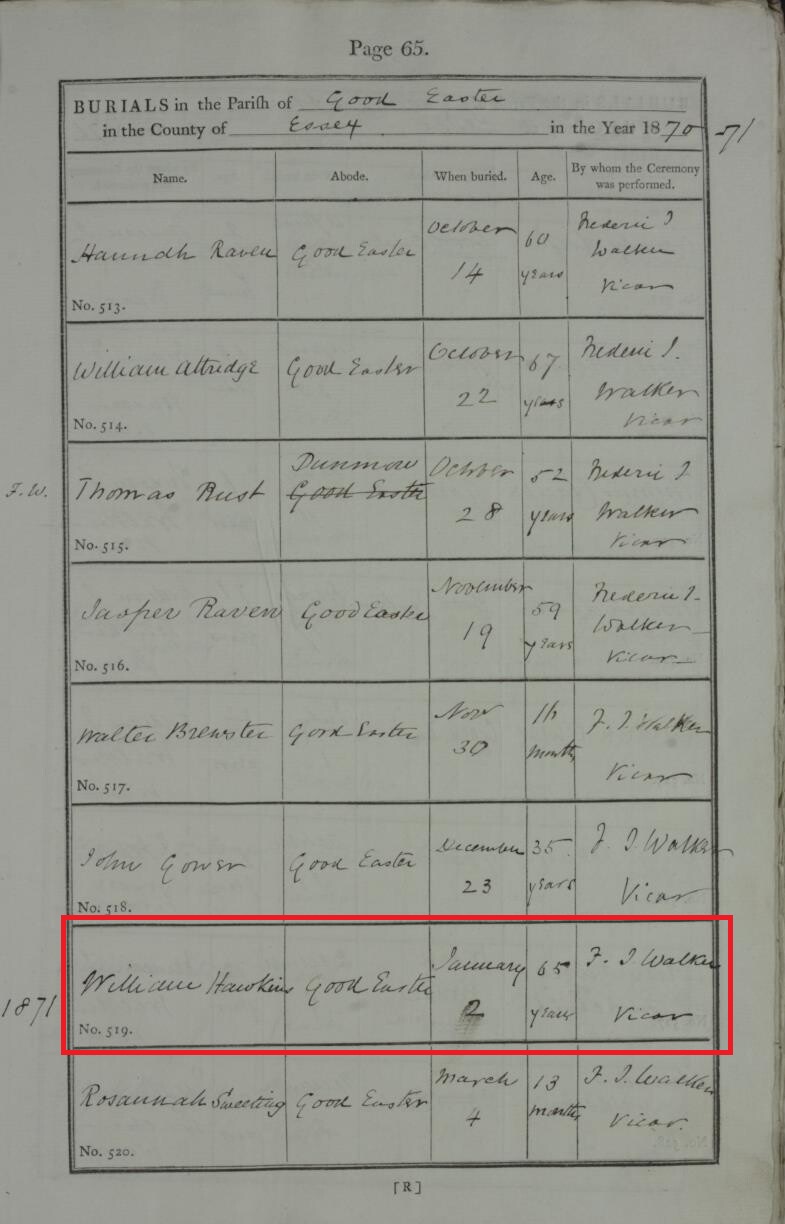 Page 65.
BURIALS in the Parish of Good Easter
in the County of Essex in the Year 1870-71
Name. Abode. When buried. Age. By whom the Ceremony was performed.
Hannah Raven Good Easter October 14 60 years Frederic I Walker Vicar
No. 513.
William Attridge Good Easter October 22 67 years Frederic I. Walker Vicar
No. 514.
F.W. Thomas Rust Dunmow Good Easter October 28 52 years Frederic I Walker Vicar
No. 515.
Jasper Raven Good Easter November 19 59 years Frederic I. Walker Vicar
No. 516.
Walter Brewster Good Easter Nov 30 16 months F. I. Walker Vicar
No. 517.
John Gower Good Easter December 23 35 years F. I. Walker Vicar
No. 518.
1871 William Hawkins Good Easter January 2 65 years F. I. Walker Vicar
No. 519.
Rosannah Sweeting Good Easter March 4 13 months F. I. Walker Vicar.
No. 520.
[R]